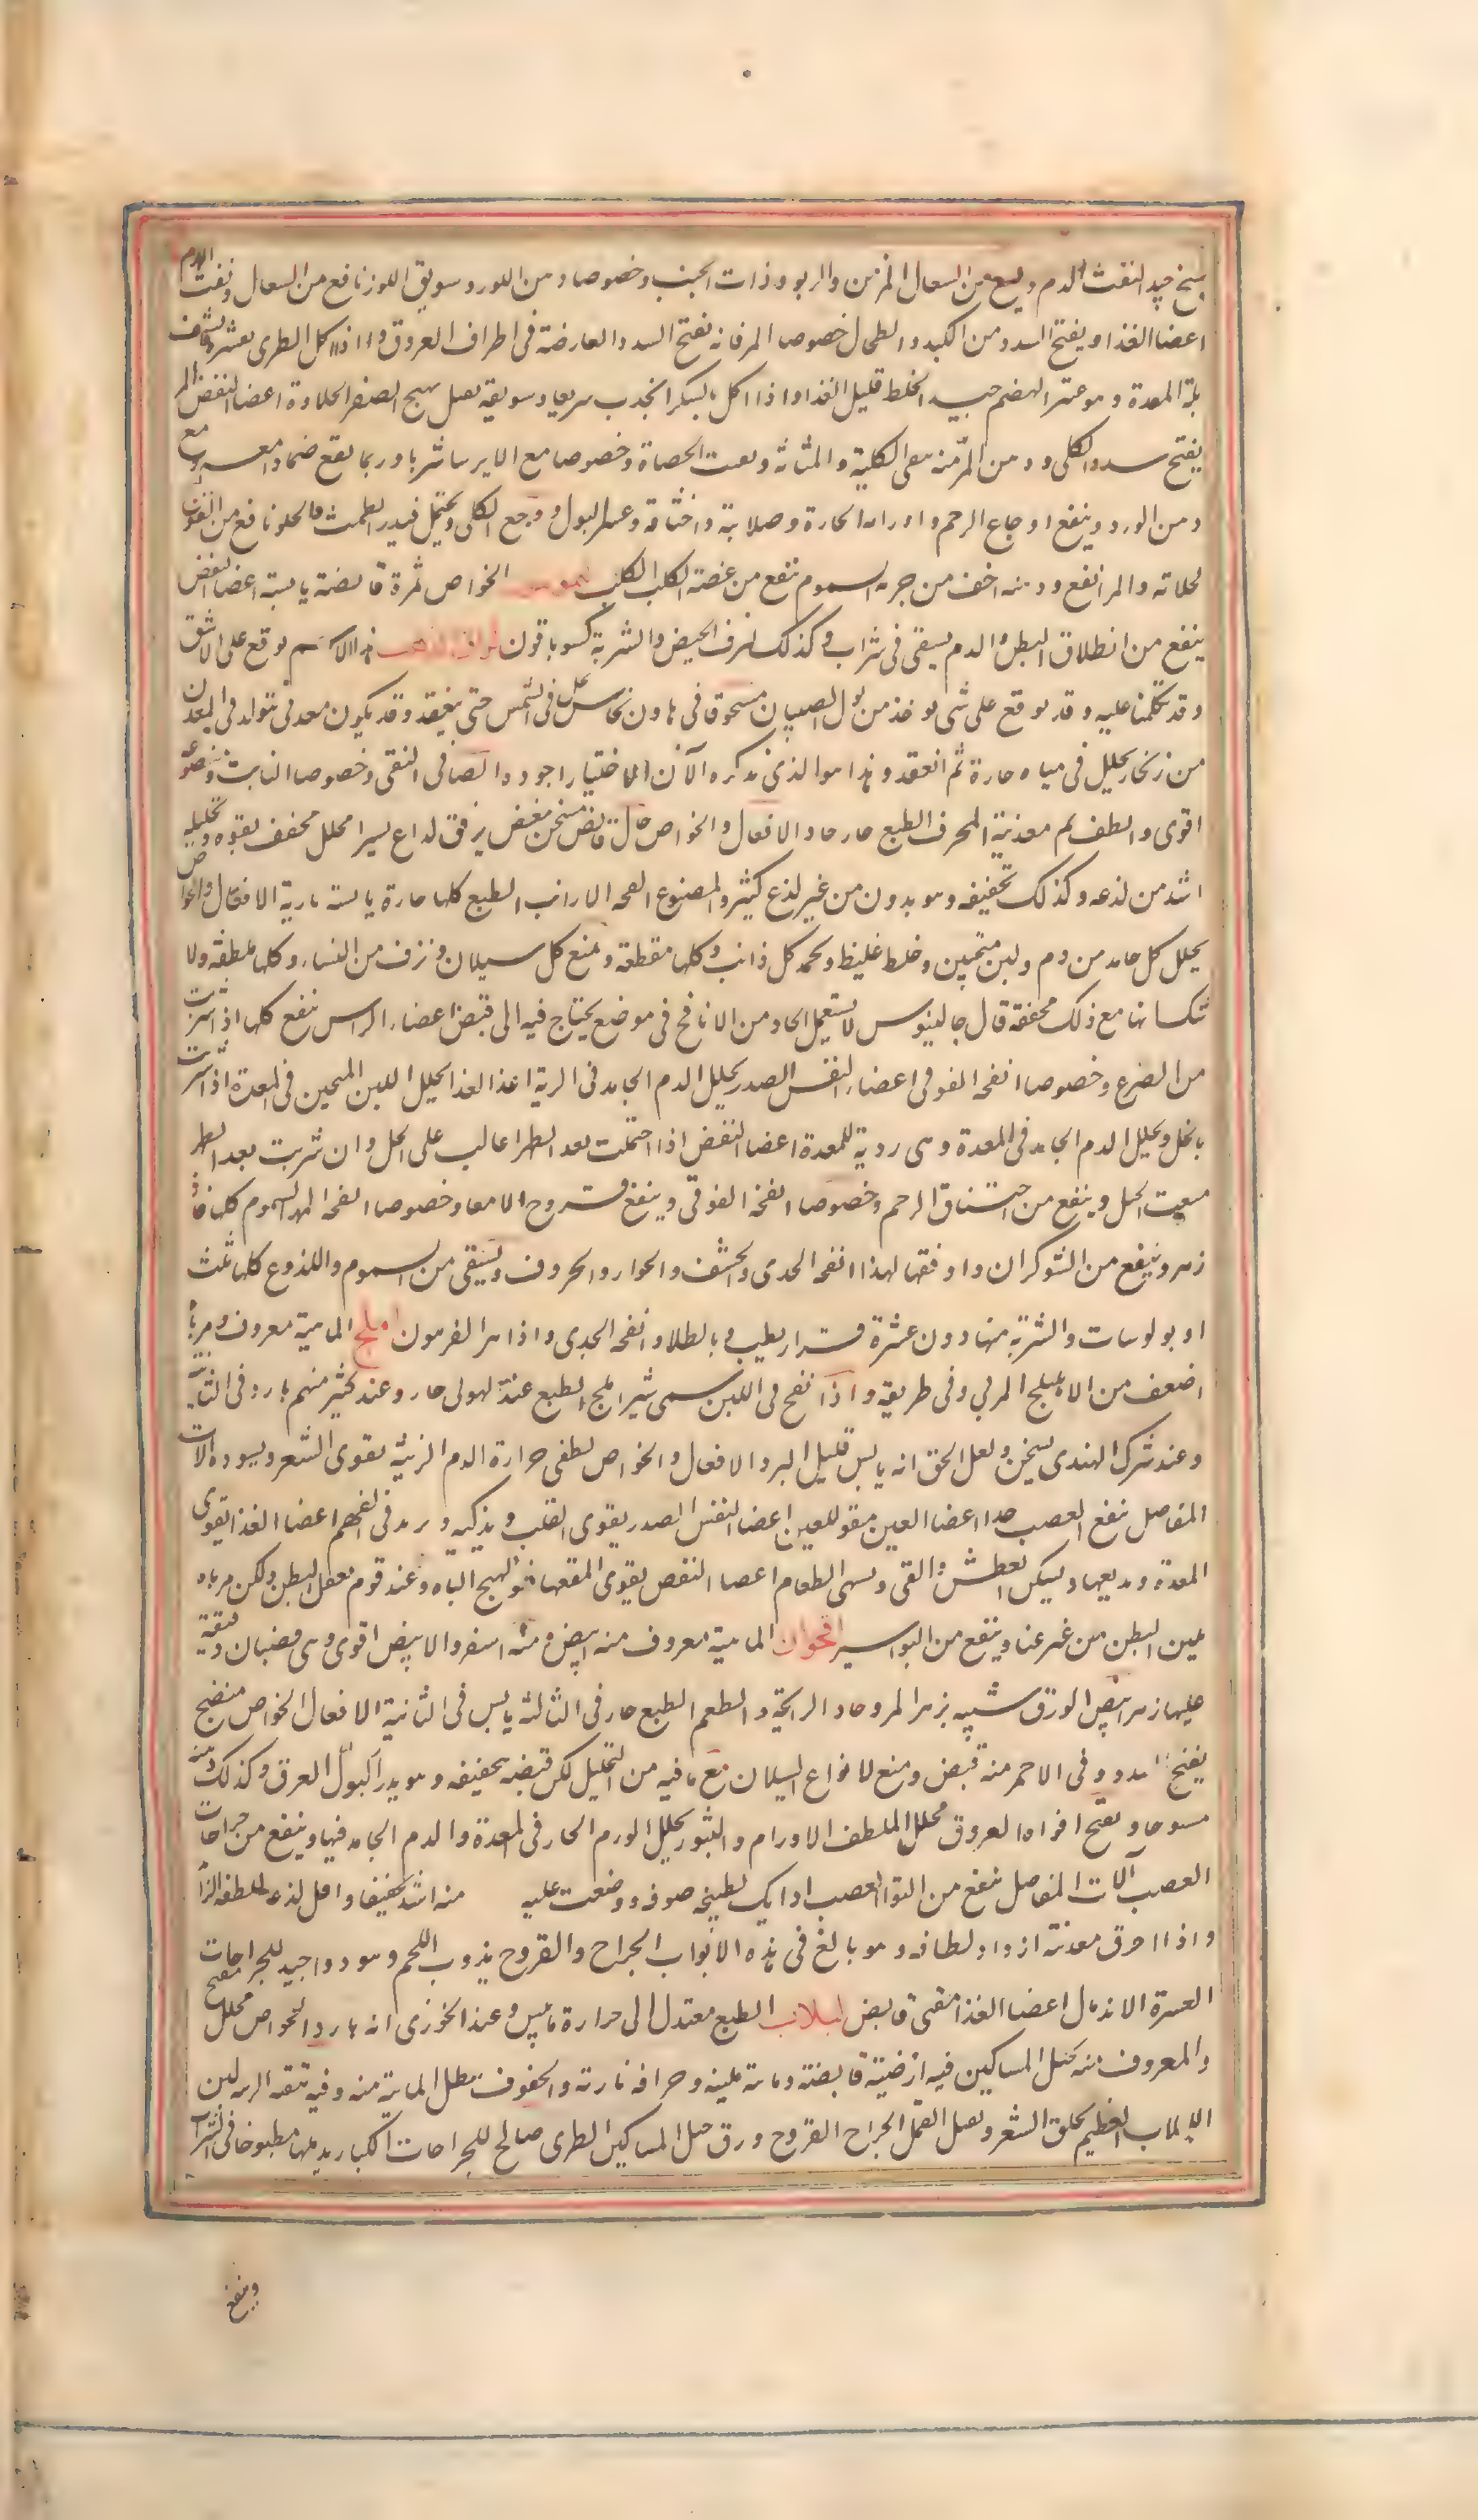 جيد لنفث الدم وينفع من السعال المزمن والربو وذات الجنب وخصوصا دهن اللوز وسويق اللوز نافع من السعال ونفث الدم
اعضا الغذا ويفتح السدد من الكبد والطحال خصوصا المر فانه يفتح السدد العارضة فى اطراف العروق واذا اكل الطرى بقشره نشف
بلة المعدة وهو عسر الهضم جيد الخلط قليل الغذا واذا اكل بالسكر انحدب سريعا وسويقه يهيج الصفر الحلاوة اعضا النفض المر
يفتح سدد الكلى ودهن المر منه ينقى الكلية والمثانة ويفت الحصاة وخصوصا مع الايرسا شربا وربما يقع ضمادا مع
ودهن الورد وينفع اوجاع الرحم واورامه الحارة وصلابة واختناقه وعسر البول ووجع الكلى ويحتمل فيدر الطمث والحلو نافع من القولنج
لحلاته والمر انفع ودهنه اخف من جرمه السموم ينفع من عضة الكلب الكلب الخواص ثمرة قابضة يابسة اعضا النفض
ينفع من انطلاق البطن والدم يسقى فى شراب وكذلك نزف الحيض والشربة اكسوبافون هذا الاسم يوقع على الاشق
وقد تكلمنا عليه وقد يوقع على شى يوخذ من بول الصبيان مسحوقا فى هاون نحاس فى الشمس حتى ينعقد وقد يكون معدنى يتولد فى المعدن
من زنجار يحلل فى مياه حارة ثم انعقد وهذا هو الذى نذكره الآن الاختيار اجوده الصافى النقى وخصوصا النابت
اقوى والطف ثم معدنية المحرق الطبع حار حاد الافعال والخواص جال قابض مسخن معفن برفق لذاع يسيرا محلل مجفف بقوه وتحليله
اشد من لذعه وكذلك تجفيفه وهو يدون من غير لذع كثير والمصنوع انفحه الارانب الطبع كلها حارة يابسة نارية الافعال والخواص
يحلل كل جامد من دم ولبن متجبن وخلط غليظ ويجمد كل ذائب وكلها مقطعة وتمنع كل سيلان ونزف من النساء وكلها ملطفة ولا
شك انها مع ذلك مجففة قال جالينوس لا يستعمل الحاد من الانافح فى موضع يحتاج فيه الى قبض اعضاء الراس تنفع كلها اذا شربت
من الصرع وخصوصا انفحه القوقى اعضاء النفس الصدر يحلل الدم الجامد فى الرية اعضا الغذا يحلل اللبن المتجبن فى المعدة اذا شربت
بالخل ويحلل الدم الجامد فى المعدة وهى ردية للمعدة اعضا النفض اذا احتملت بعد الطهر اعانت على الحبل وان شربت بعد الطهر
منعت الحبل وينفع من اختناق الرحم وخصوصا انفحة القوقى وينفع قروح الامعا وخصوصا انفحة المهر السموم كلها فاد
زهر وينفع من الشوكران واوفقها لهذا انفحه الجدى والخشف والحوار والخروف ويسقى من السموم واللذوع كلها ثلث
اوبولوسات والشربة منها دون عشرة قراريط بالطلا وانفحه الجدى واذا هر الفرمون املج الماهية معروف ومرباه
اضعف من الاهليلج المربى وفى طريقه واذا نفع فى اللبن سمى شير املج الطبع عند اليهودى حار وعند كثير منهم بارد فى الثانية
وعند شرك الهندى يسخن ولعل الحق انه يابس قليل البرد الافعال والخواص يطفى حرارة الدم الزينة يقوى الشعر ويسوده آلات
المفاصل ينفع العصب جدا اعضا العين مقو للعين اعضا النفس الصدر يقوى القلب ويذكيه ويزيد فى الفهم اعضا الغذا يقوى
المعدة ويدبغها ويسكن العطش والقى ويشهى الطعام اعضا النفض يقوى المقعدة ويهيج الباه وعند قوم يعقل البطن ولكن مرباه
يلين البطن من غير عنا وينفع من البواسير اقحوان الماهية معروف منه ابيض ومنه اصفر والابيض اقوى وهى قضبان دقيقة
عليها زهر ابيض الورق شبيه بزهر المرو حاد الرائحة والطعم الطبع حار فى الثالثة يابس فى الثانية الافعال الخواص منضج
يفتح السدد وفى الاحمر منه قبض ومنع لانواع السيلان مع ما فيه من التحليل لكن قبضه تجفيفه وهو يدر البول العرق وكذلك دهنه
مسوحا ويفتح افواه العروق محلل ملطف الاورام والبثور يحلل الورم الحار فى المعدة والدم الجامد فيها وينفع من جراحات
العصب آلات المفاصل ينفع من التوا العصب اذا بل بطبيخه صوف ووضعت عليه منه اشد تجفيفا واقل لذعا للطفه
واذا احرق معدنه ازداد لطافه وهو بالغ فى هذه الابواب الجراح والقروح يذوب اللحم وهو دوا جيد للجراحات
العسرة الاندمال اعضا الغذا مقى قابض لبلاب الطبع معتدل الى حرارة ما يبس وعند الخوزى انه بارد الخواص محلل مفتح
والمعروف منه بحبل المساكين فيه ارضية قابضة ومائة ملينه وحرافة نارية والجفوف يبطل المائية منه وفيه تنقية الزينة لبن
اللبلاب العظيم يحلق الشعر ويقتل القمل الجراح القروح ورق حبل المساكين الطرى صالح للجراحات الكبار يدملها مطبوخا فى الشراب
وينفع